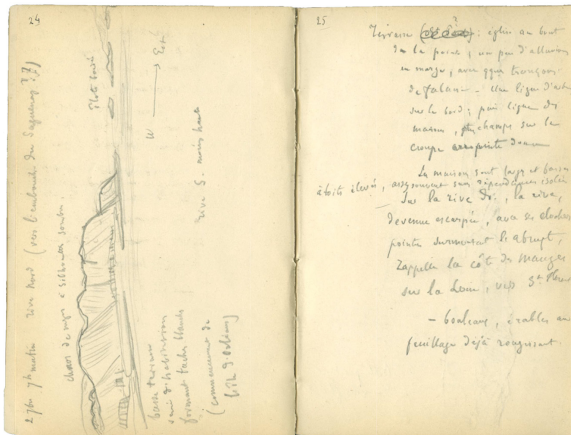 24
2 7bre 7h matin rive Nord (vers l'embouch. du Saguenay ?)
chaos de
Ilots boisés
W → Est
rive S. moins haute
basse terrasse
semi d'habitations
formant taches blanches
(commencement de
l'île d'Orléans)
25
Terrasse : église au bout
de la pointe ; un peu d'alluvions
en marge, avec qques tronçons
de falaise – Une ligne d'arbres
sur le bord ; puis ligne de
maisons, champs sur la
croupe
Les maisons sont larges et basses
à toits élevés, assez souvent sans dépendances isolées
Sur la rive dr., la rive,
devenue escarpée, avec ses clochers
pointus surmontant l'abrupt,
rappelle la côte de Mauges
sur la Loire, vers
– bouleaux, érables au
feuillage déjà rougissant.